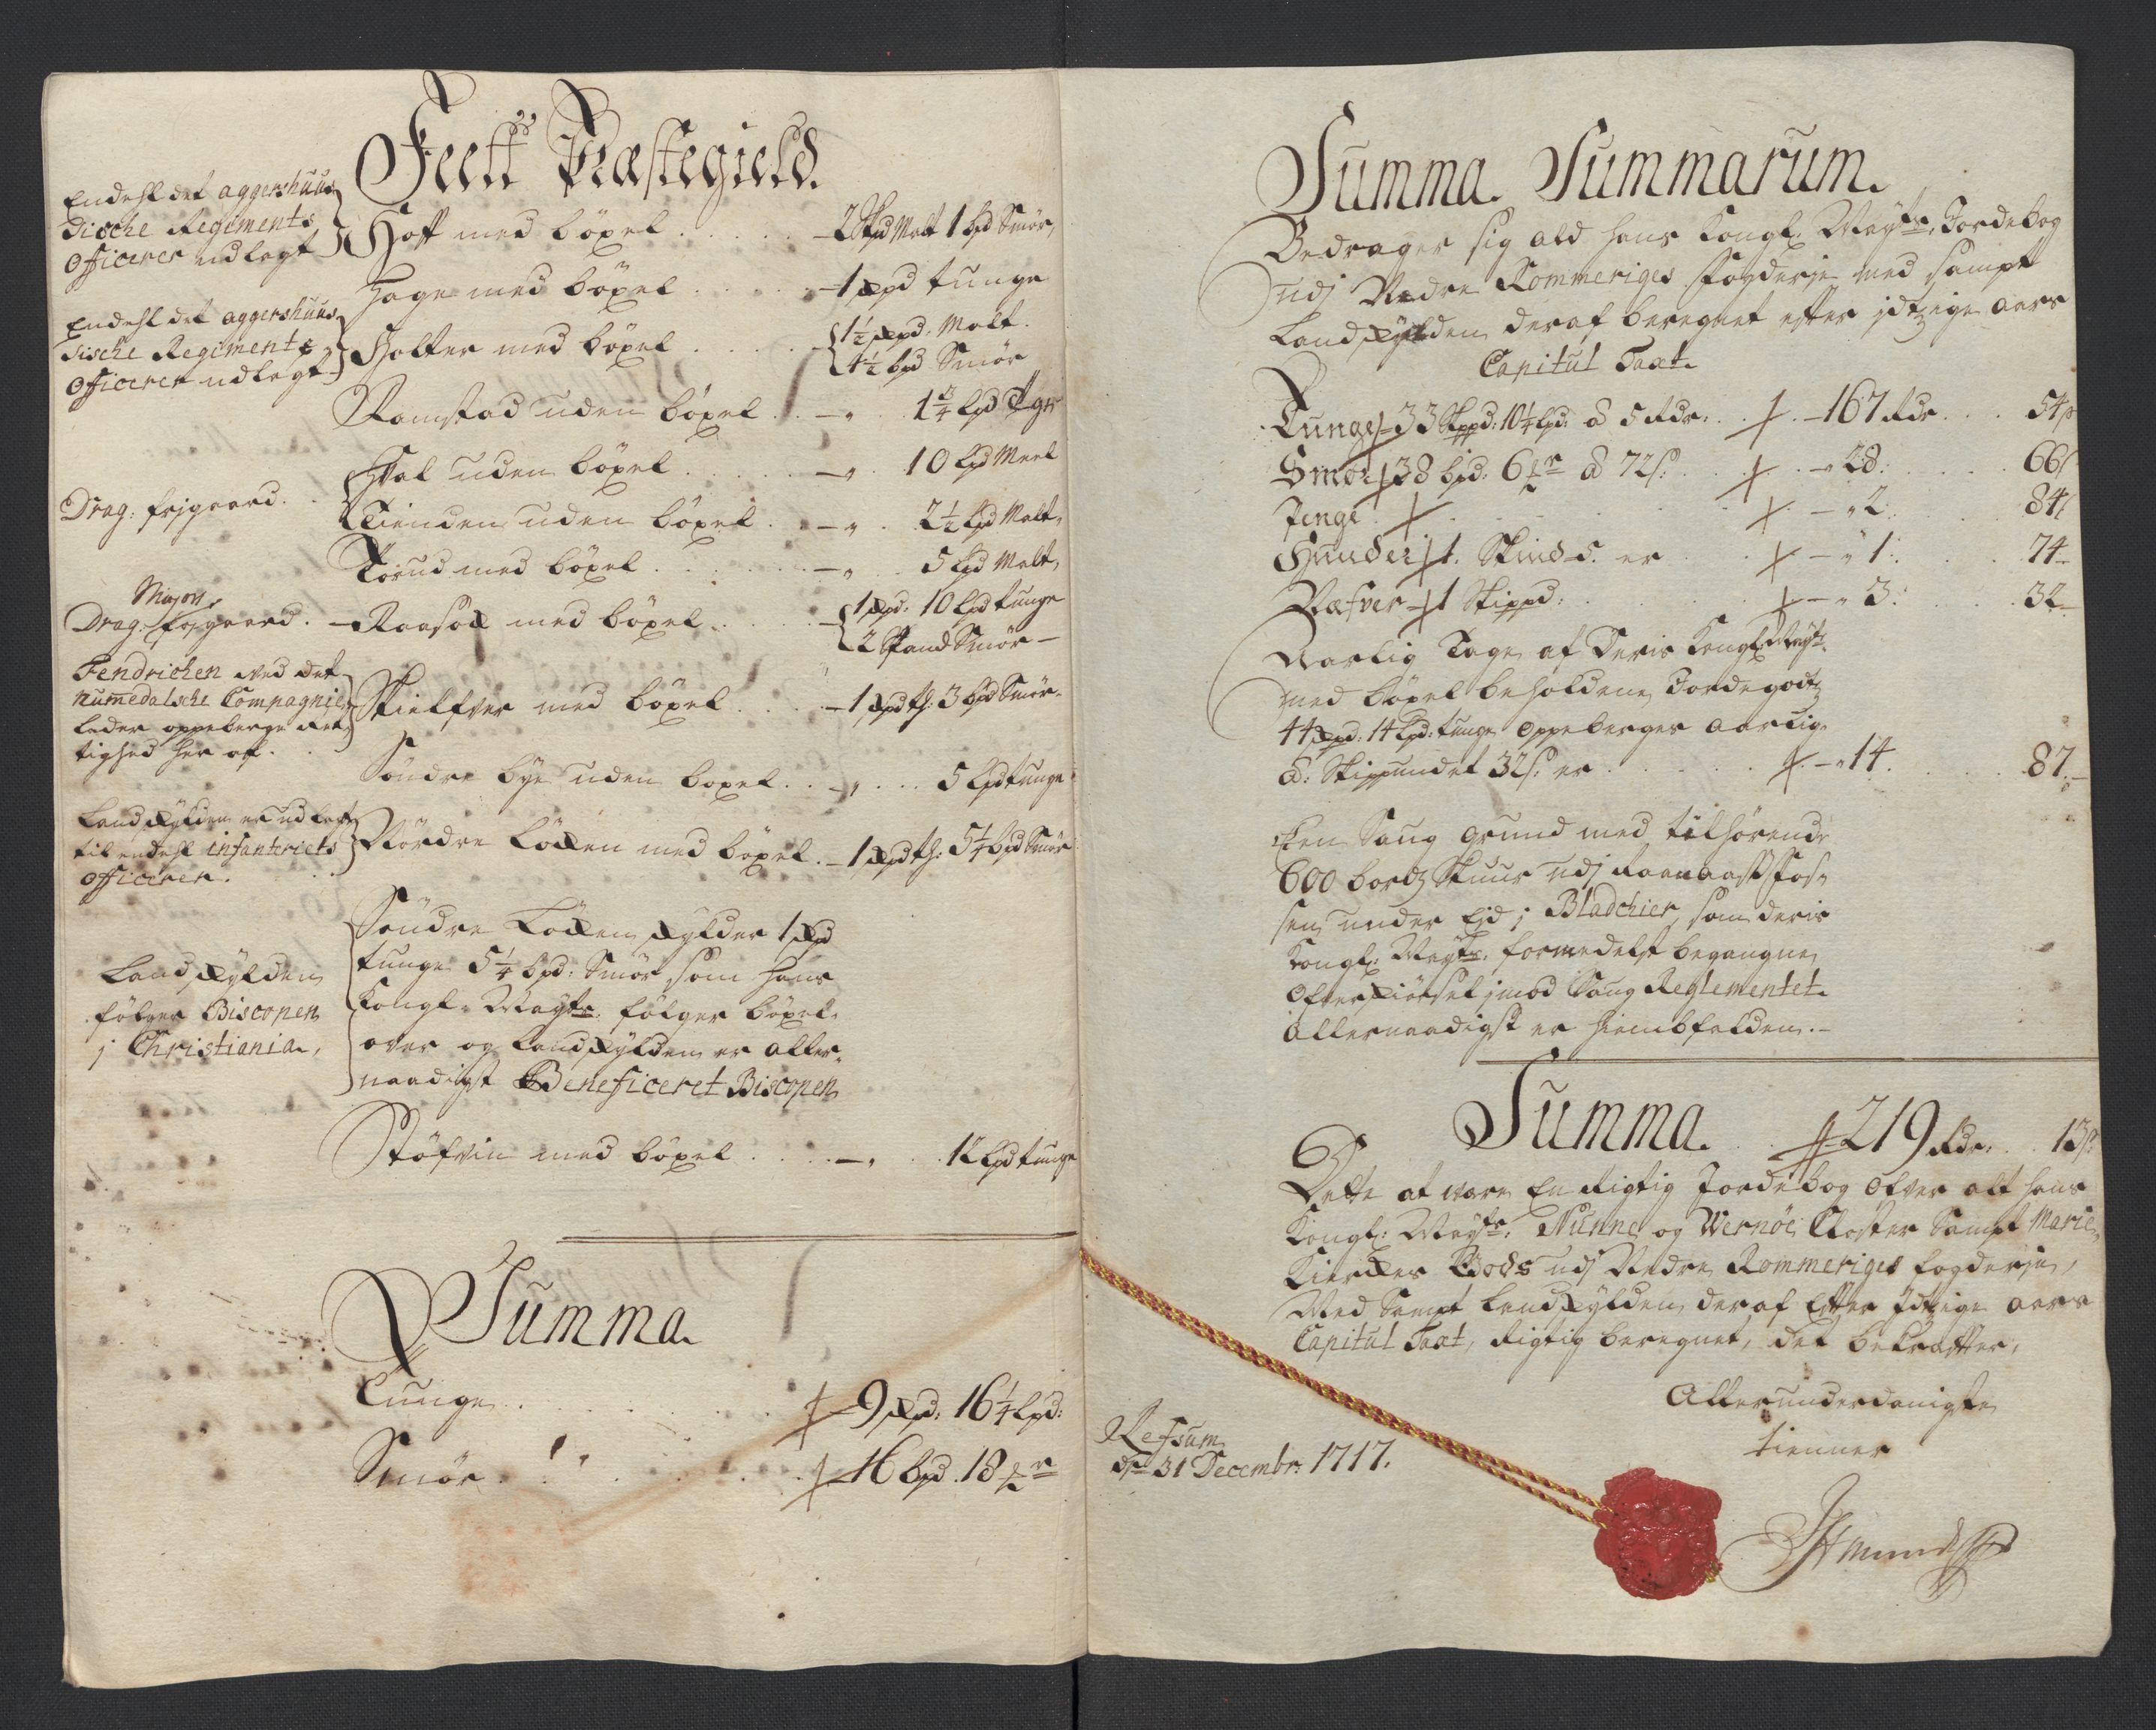 Feett Præstegield.
Endehl det aggershuus
dische Regiments
Officerer udlagt
Hoff med böxel . . . . . 2 Skpd Malt 1 bpd Smör,
Hage med böxel . . . . . 1 skpd tunge
Endehl det aggershuus
dische Regiments
Officerer udlagt
Holter med böxel . . . . . 1½ skpd. Malt.
4½ bpd Smör
Ramstad uden böxel . . — „ . . 1¾ lpd
Drag: frjgaard. .
Hval uden böxel . . . . — „ . . 10 lpd Meel
Tienden uden böxel . . — „ . . 2½ lpd Malt,
Torud med böxel . . . . — „ . . 5 lpd Malt,
Majors
Drag: frjgaard. — Raasok med böxel . . . . 1 skpd: 10 lpd tunge
2 Spand Smör —
Fendrichen ved det
Numedalsche Compagnie
lader oppeberge Ret,
tighed her af. . .
Skielfver med böxel . . . . — 1 skpd th: 3 bpd Smör.
Söndre bye uden boxel . . — „ . . . 5 lpd tunge
Landskylden er udlagt
til endehl infanteriets
Officerer. . .
Nordre Löken med böxel. — 1 skpd th: 5¼ bpd Smör
Landskylden
fölger Biscopen
j Christiania,
Söndre Löken skylder 1 skpd
tunge 5¼ bpd: Smör, som hans
Kongl. Mayts. fölger böxel,
over og landskylden er aller,
naadigst Beneficeret Biscopen
Stöfvin med böxel . . . . — „ . . 12 lpd tunge
Summa.
Tunge . . . . . . 9 skpd: 16¼ lpd:
Smör . . . . . . 16 bpd. 18½ mr
Summa Summarum.
Bedrager sig ald hans Kongl. Mayts. Jordebog
udj Nedre Rommeriges fogderje med sampt
Landskylden deraf beregnet effter jdtzige aars
Capitul Taxt.
Tunge 33 Skppd: 10¼ lpd: â 5 Rdr: . . — 167 Rdr . . . 54 s
Smör 38 bpd. 6½ mr â 72 s: . . . — „ 28: . . . . 66 s
Penge . . . . . . — „ 2. . . . . 84 s
Huuder 1. Skind 5. er . . . — „ 1: . . . 74 —
Næfver 1 Skippd: . . . . . — „ 3: . . . . 32 —
Aarlig Tage af Deris Kongl. Mayts.
med böxel beholdene Jordegodtz
44 skpd. 14 lpd: tunge oppeberges aarlig
â: Skippundet 32 s: er . . . . . — „ 14. . . . . . 87. —
Een Saug grund med tilhörende
600 bordz Skuur udj Raanaass foss
sen under Eid j Bladchier, som deris
Kongl. Mayts. formedelst begangne
Ofverskiörsel jmod Saug Reglementet
allernaadigst er hiembfalden. —
Summa. . . 219 Rdr . . 13 s:
Dette at være En Rigtig Jordebog ofver alt hans
Kongl: Mayts: Nunne og Wernöe Closter Sampt Marie,
Kierckes Gods udj Nedre Rommeriges fogderje,
Med Sampt Landskylden deraf Effter Jdtzige aars
Capitul Taxt, Rigtig beregnet, det bekræffter,
Allerunderdanigste
tienner
Refsum
dn 31 Decembr: 1717.